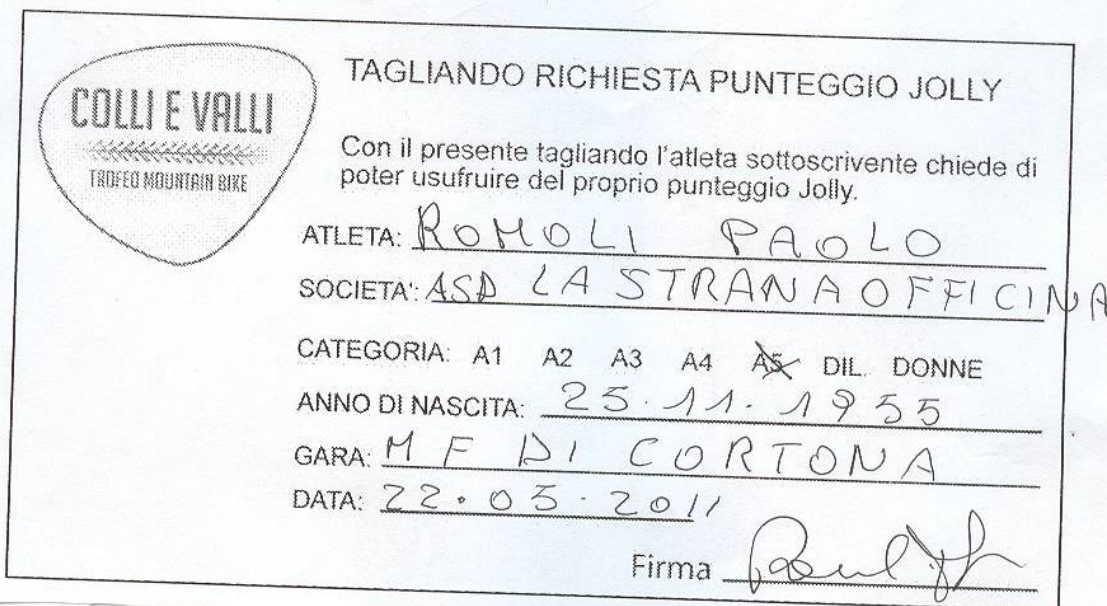 COLLI E VALLI
TROFEO MOUNTAIN BIKE
TAGLIANDO RICHIESTA PUNTEGGIO JOLLY
Con il presente tagliando l'atleta sottoscrivente chiede di
poter usufruire del proprio punteggio Jolly.
ATLETA: ROMOLI PAOLO
SOCIETA': ASD LA STRANA OFFICINA
CATEGORIA: A1 A2 A3 A4 A5 DIL. DONNE
ANNO DI NASCITA: 25.11.1955
GARA: M F DI CORTONA
DATA: 22.05.2011
Firma